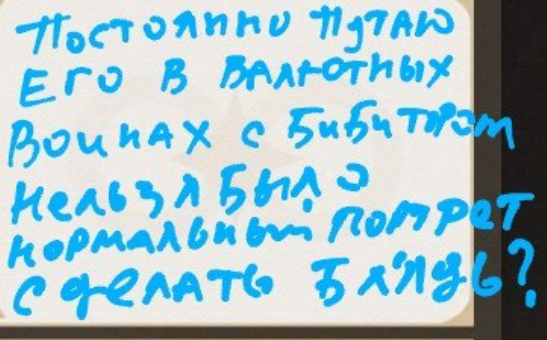 Постоянно путаю
Его в валютных
Воинах с Бибитором
нельзя было
нормальный портрет
сделать блядь?